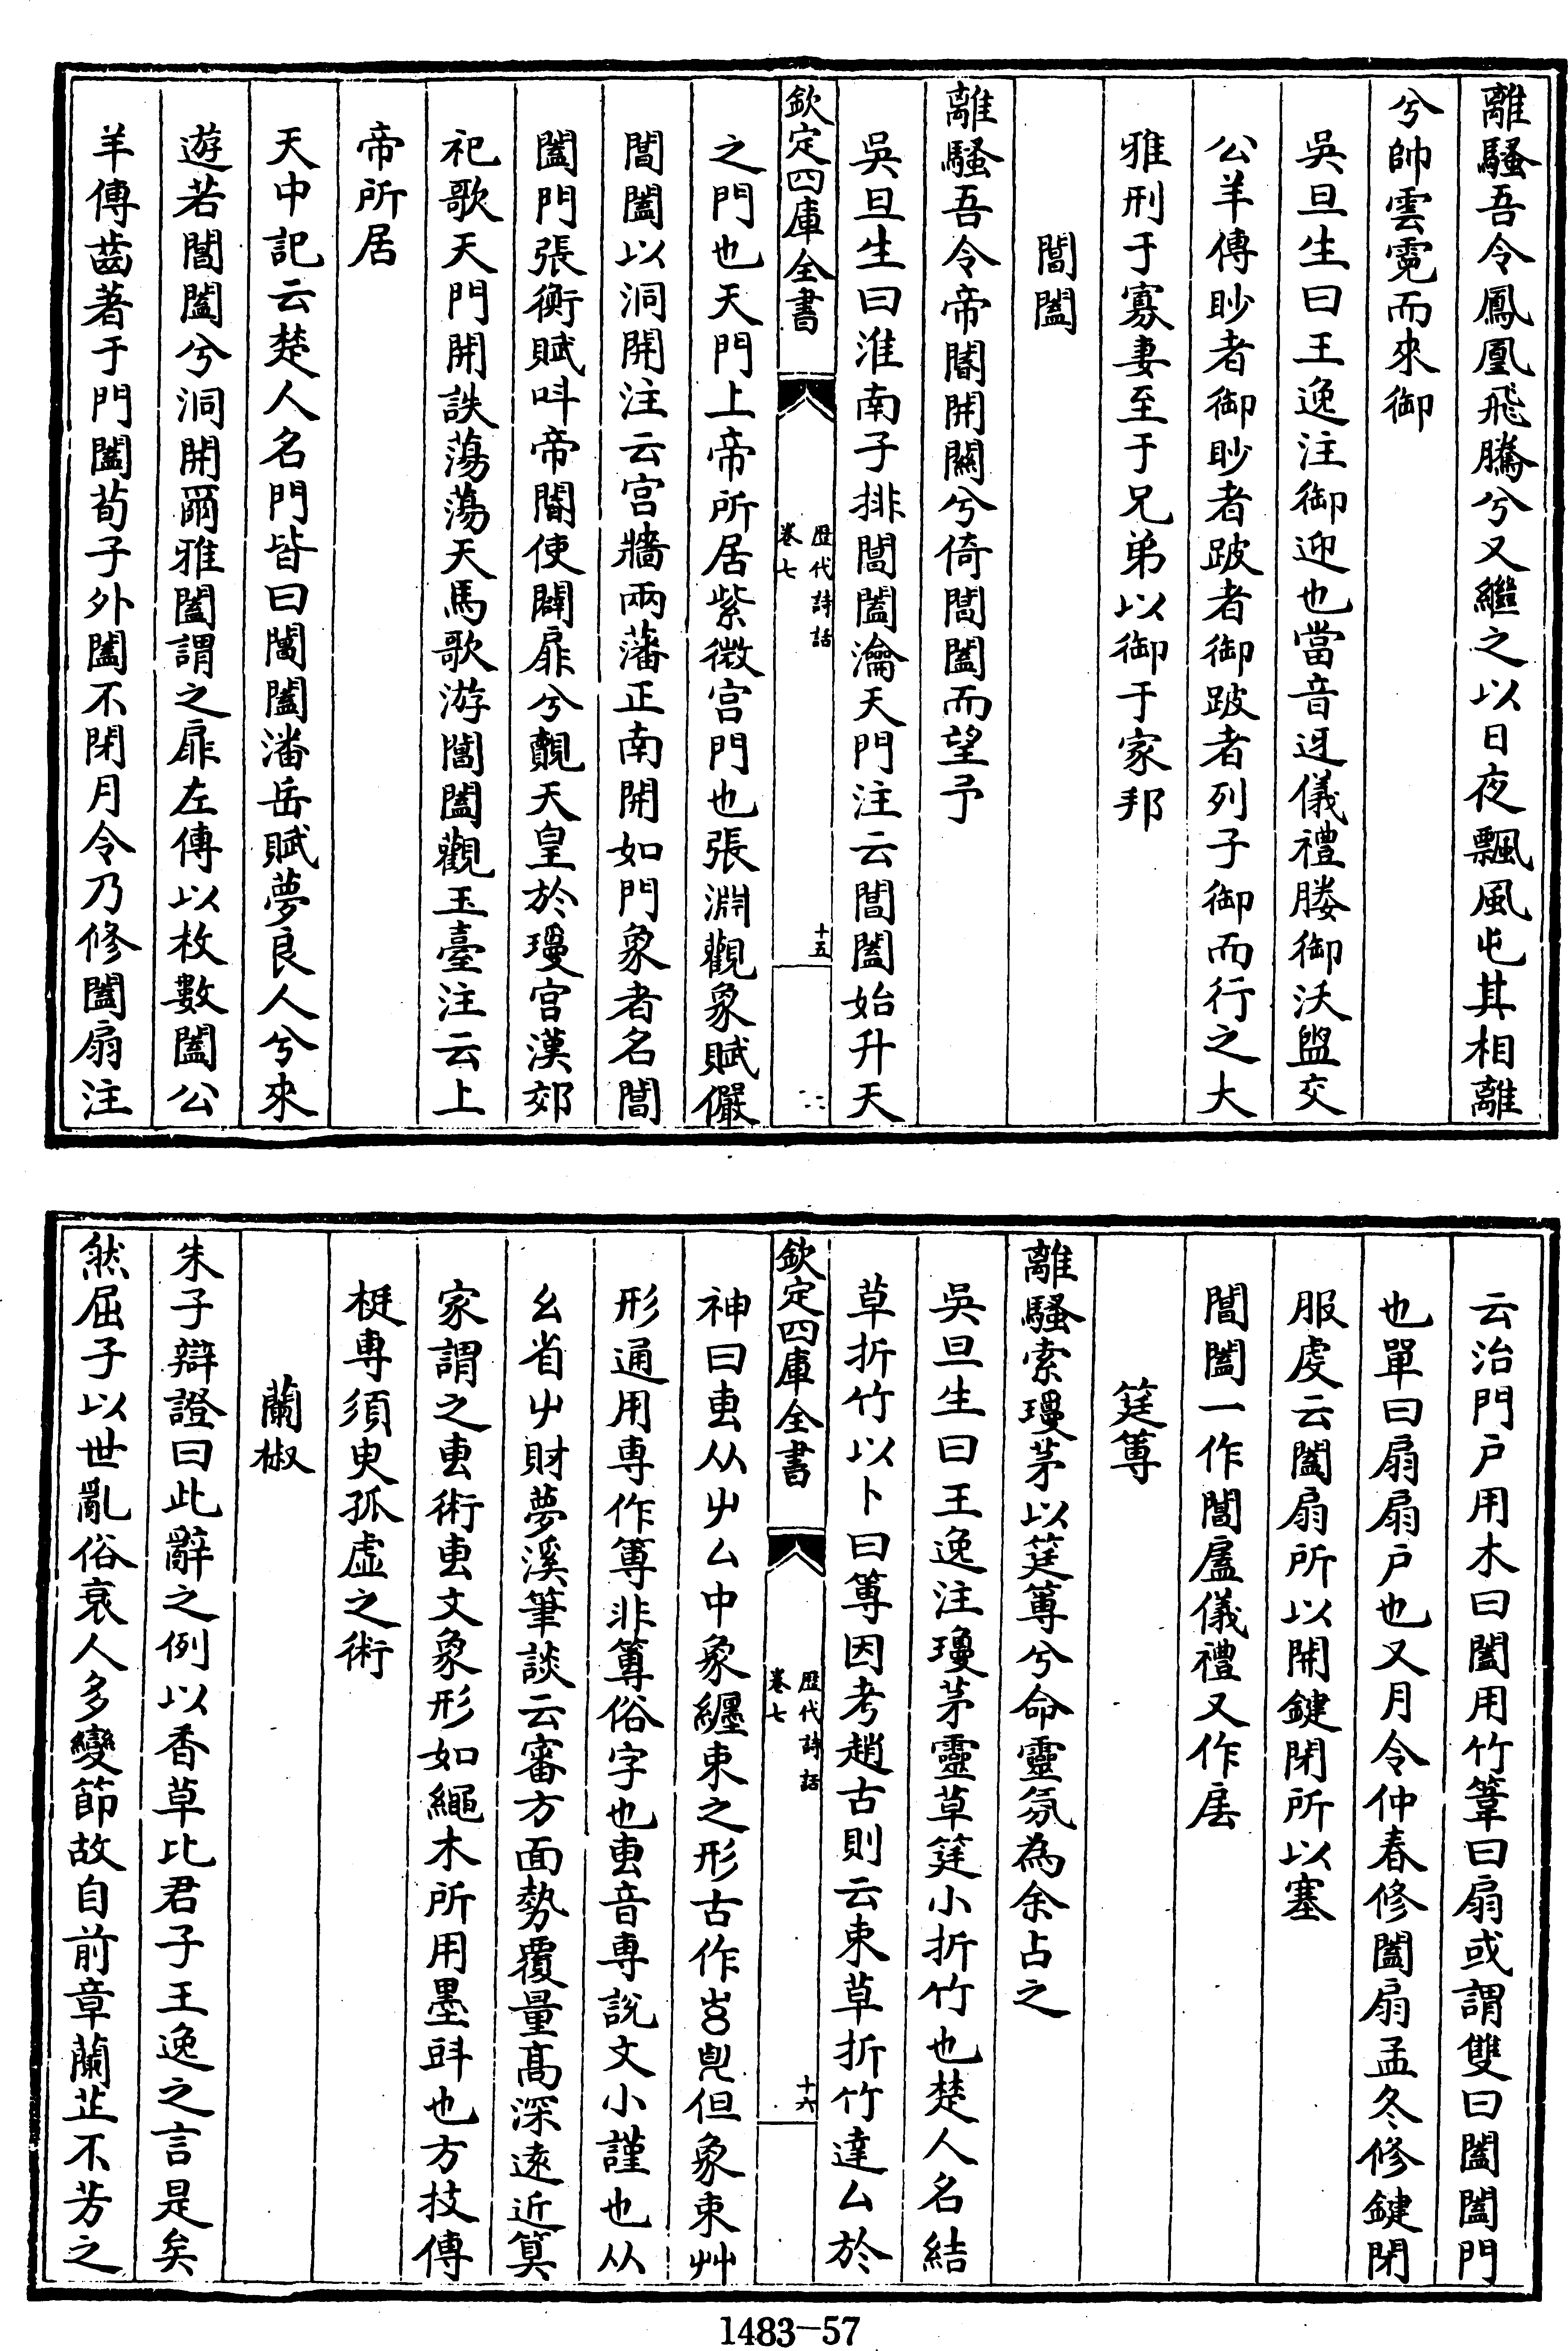 離騷吾令鳳凰飛騰兮又繼之以日夜飄風屯其相離
兮帥雲霓而來御
吳旦生曰王逸注御迎也當音迓儀禮媵御沃盥交
公羊傳眇者御眇者跛者御跛者列子御而行之大
雅刑于寡妻至于兄弟以御于家邦
閶闔
離騷吾令帝閽開關兮倚閶闔而望予
吳旦生曰淮南子排閶闔瀹天門注云閶闔始升天
欽定四庫全書
歷代詩話
卷七
十五
之門也天門上帝所居紫微宫門也張淵觀象賦儼
閶闔以洞開注云宫牆兩藩正南開如門象者名閶
闔門張衡賦呌帝閽使闢扉兮覿天皇於瓊宫漢郊
祀歌天門開詄蕩蕩天馬歌游閶闔觀玉臺注云上
帝所居
天中記云楚人名門皆曰閶闔潘岳賦夢良人兮來
遊若閶闔兮洞開爾雅闔謂之扉左傳以枚數闔公
羊傳齒著于門闔荀子外闔不閉月令乃修闔扇注
云治門戶用木曰闔用竹葦曰扇或謂雙曰闔闔門
也單曰扇扇戶也又月令仲春修闔扇孟冬修鍵閉
服虔云闔扇所以開鍵閉所以塞
閶闔一作閶廬儀禮又作㕎
筳篿
離騷索瓊茅以筳篿兮命靈氛為余占之
吳旦生曰王逸注瓊茅靈草筳小折竹也楚人名結
草折竹以卜曰篿因考趙古則云束草折竹達厶於
欽定四庫全書
歷代詩話
卷七
十六
神曰叀从屮厶中象纏束之形古作𠧟皃但象束艸
形通用専作篿非篿俗字也叀音専說文小謹也从
幺省屮財夢溪筆談云審方面勢覆量髙深逺近筭
家謂之叀術叀文象形如繩木所用墨㪷也方技傳
梃専須臾孤虛之術
蘭椒
朱子辯證曰此辭之例以香草比君子王逸之言是矣
然屈子以世亂俗衰人多變節故自前章蘭芷不芳之
1483-57